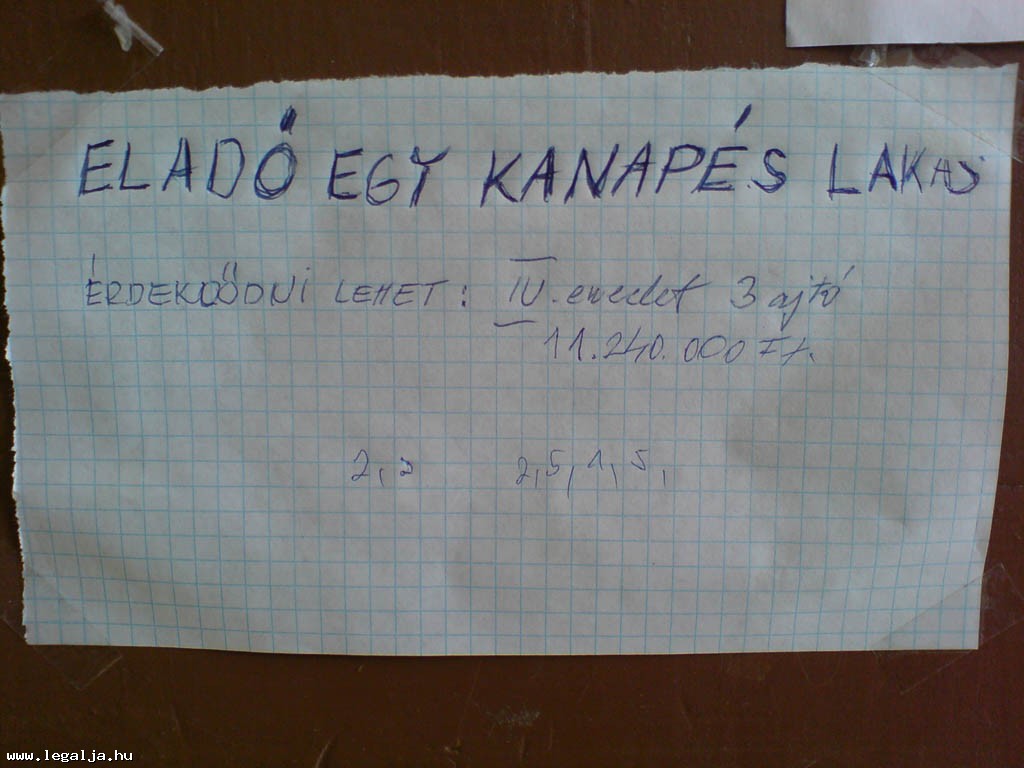 ELADÓ EGY KANAPÉS LAKAS
ÉRDEKDŐDNI LEHET: IV. emelet 3 ajtó
11.240.000 Ft.
2, 2 2,5,1,5,
www.legalja.hu